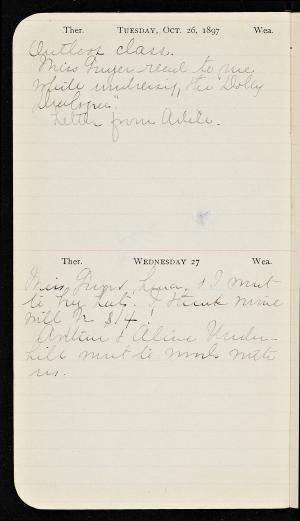 Ther. TUESDAY, OCT. 26, 1897 Wea.
Outdoor class.
Miss Guyer read to me
while undressing, the Dolly
Dialogues".
Letter from Adele.
Ther. WEDNESDAY 27 Wea.
Miss , & I went
to buy hats. I think mine
will be $14.
& Alice Under-
hill went to work with
us.